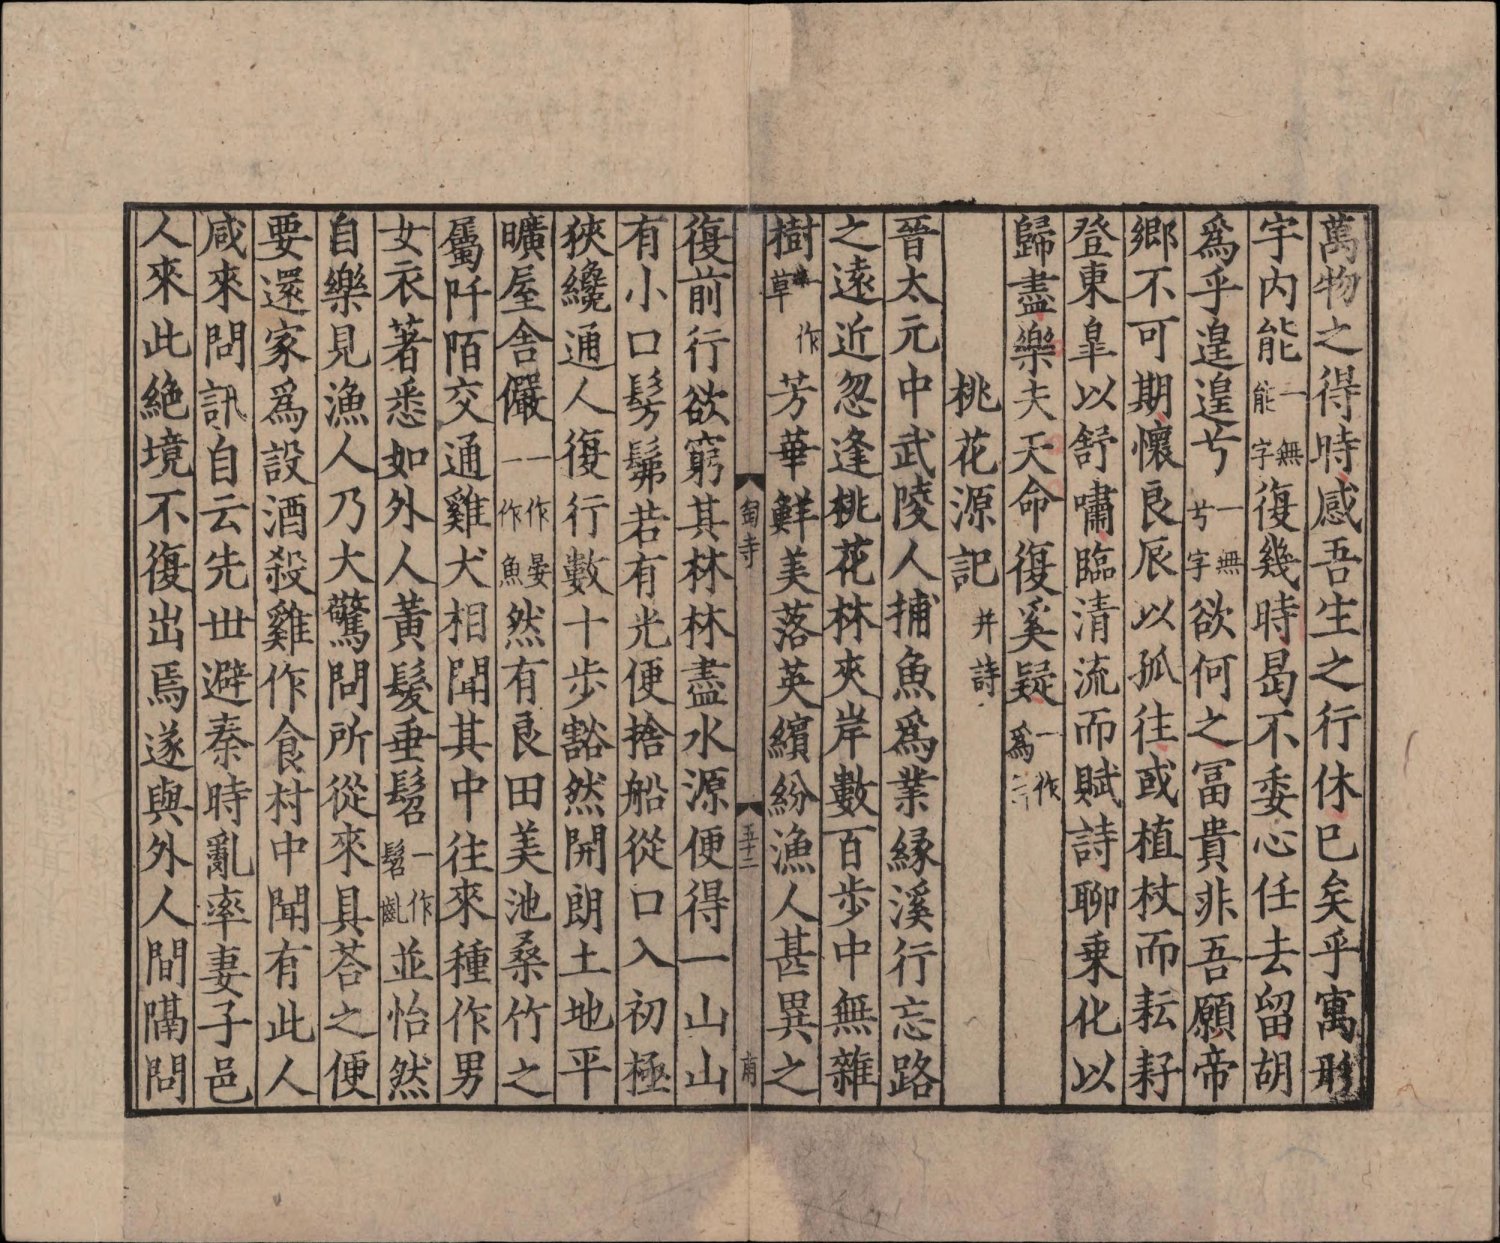 萬物之得時感吾生之行休已矣乎寓形
宇内能一無能字復幾時曷不委心任去留胡
爲乎遑遑兮一無兮字欲何之冨貴非吾願帝
鄉不可期懷良辰以孤往或植杖而耘耔
登東皐以舒嘯臨清流而賦詩聊乗化以
歸盡樂夫天命復奚疑一作爲
桃花源記并詩
晉太元中武陵人捕魚爲業緣溪行忘路
之遠近忽逢桃花林夾岸數百步中無雜
樹一作草芳華鮮美落英繽紛漁人甚異之
匋寺 五十二
復前行欲窮其林林盡水源便得一山山
有小口髣髴若有光便捨船從口入初極
狹纔通人復行數十步豁然開朗土地平
曠屋舍儼一作晏一作魚然有良田美池桑竹之
屬阡陌交通雞犬相聞其中往來種作男
女衣著悉如外人黃髮垂髫一作髫齓並怡然
自樂見漁人乃大驚問所從來具荅之便
要還家爲設酒殺雞作食村中聞有此人
咸來問訊自云先世避秦時亂率妻子邑
人來此絶境不復出焉遂與外人間隔問